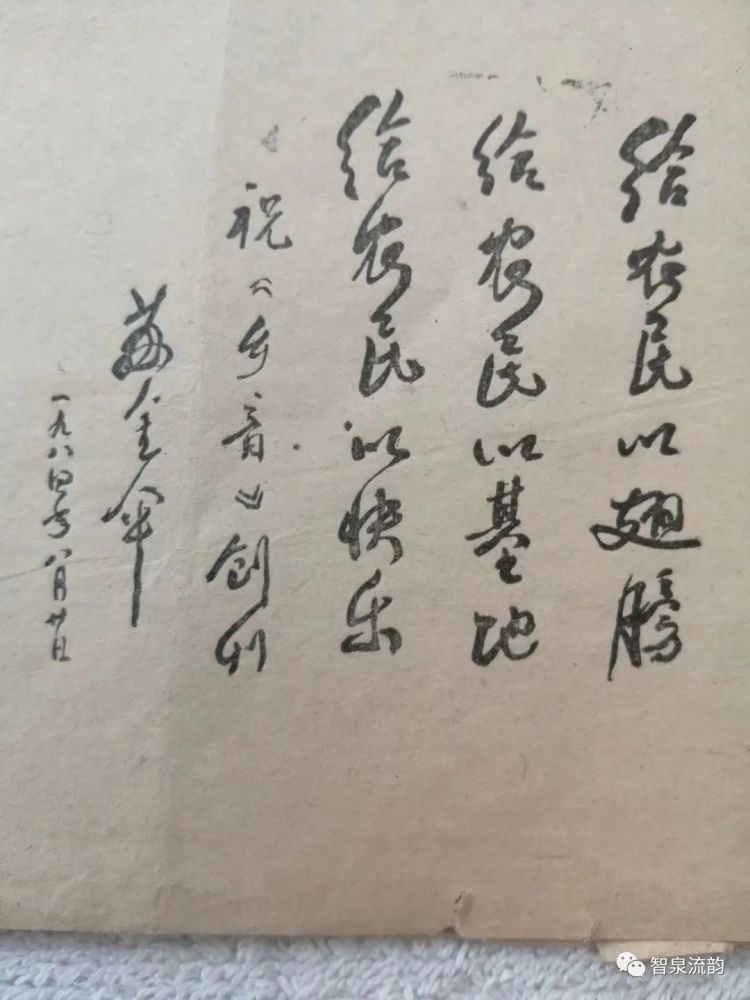 给农民以翅膀
给农民以基地
给农民以快乐
祝《乡音》创刊
苏金伞
一九八四年八月廿日
智泉流韵